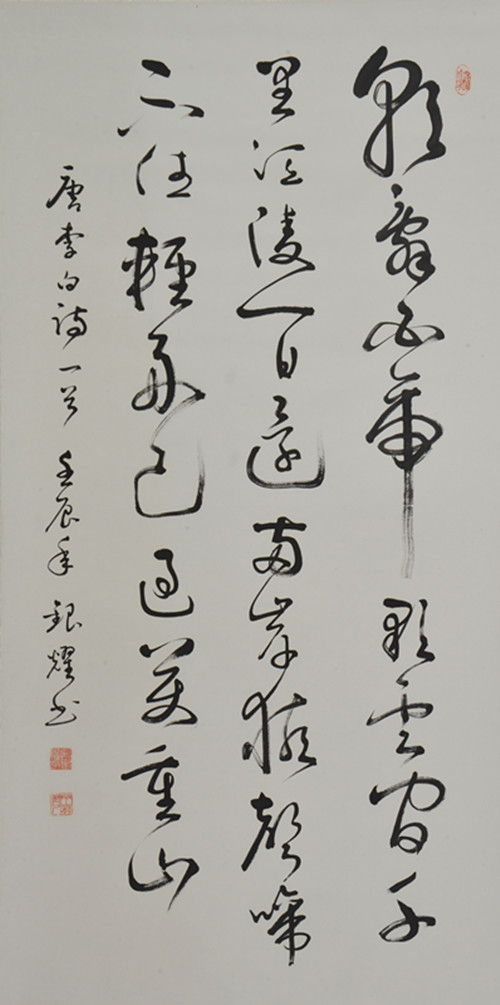 朝辭白帝彩雲間千
里江陵一日還兩岸猿聲啼
不住輕舟已過萬重山
唐李白詩一首 壬辰年 銀耀书